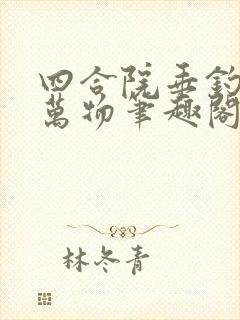 四合院垂釣
萬物筆趣閣
林冬青